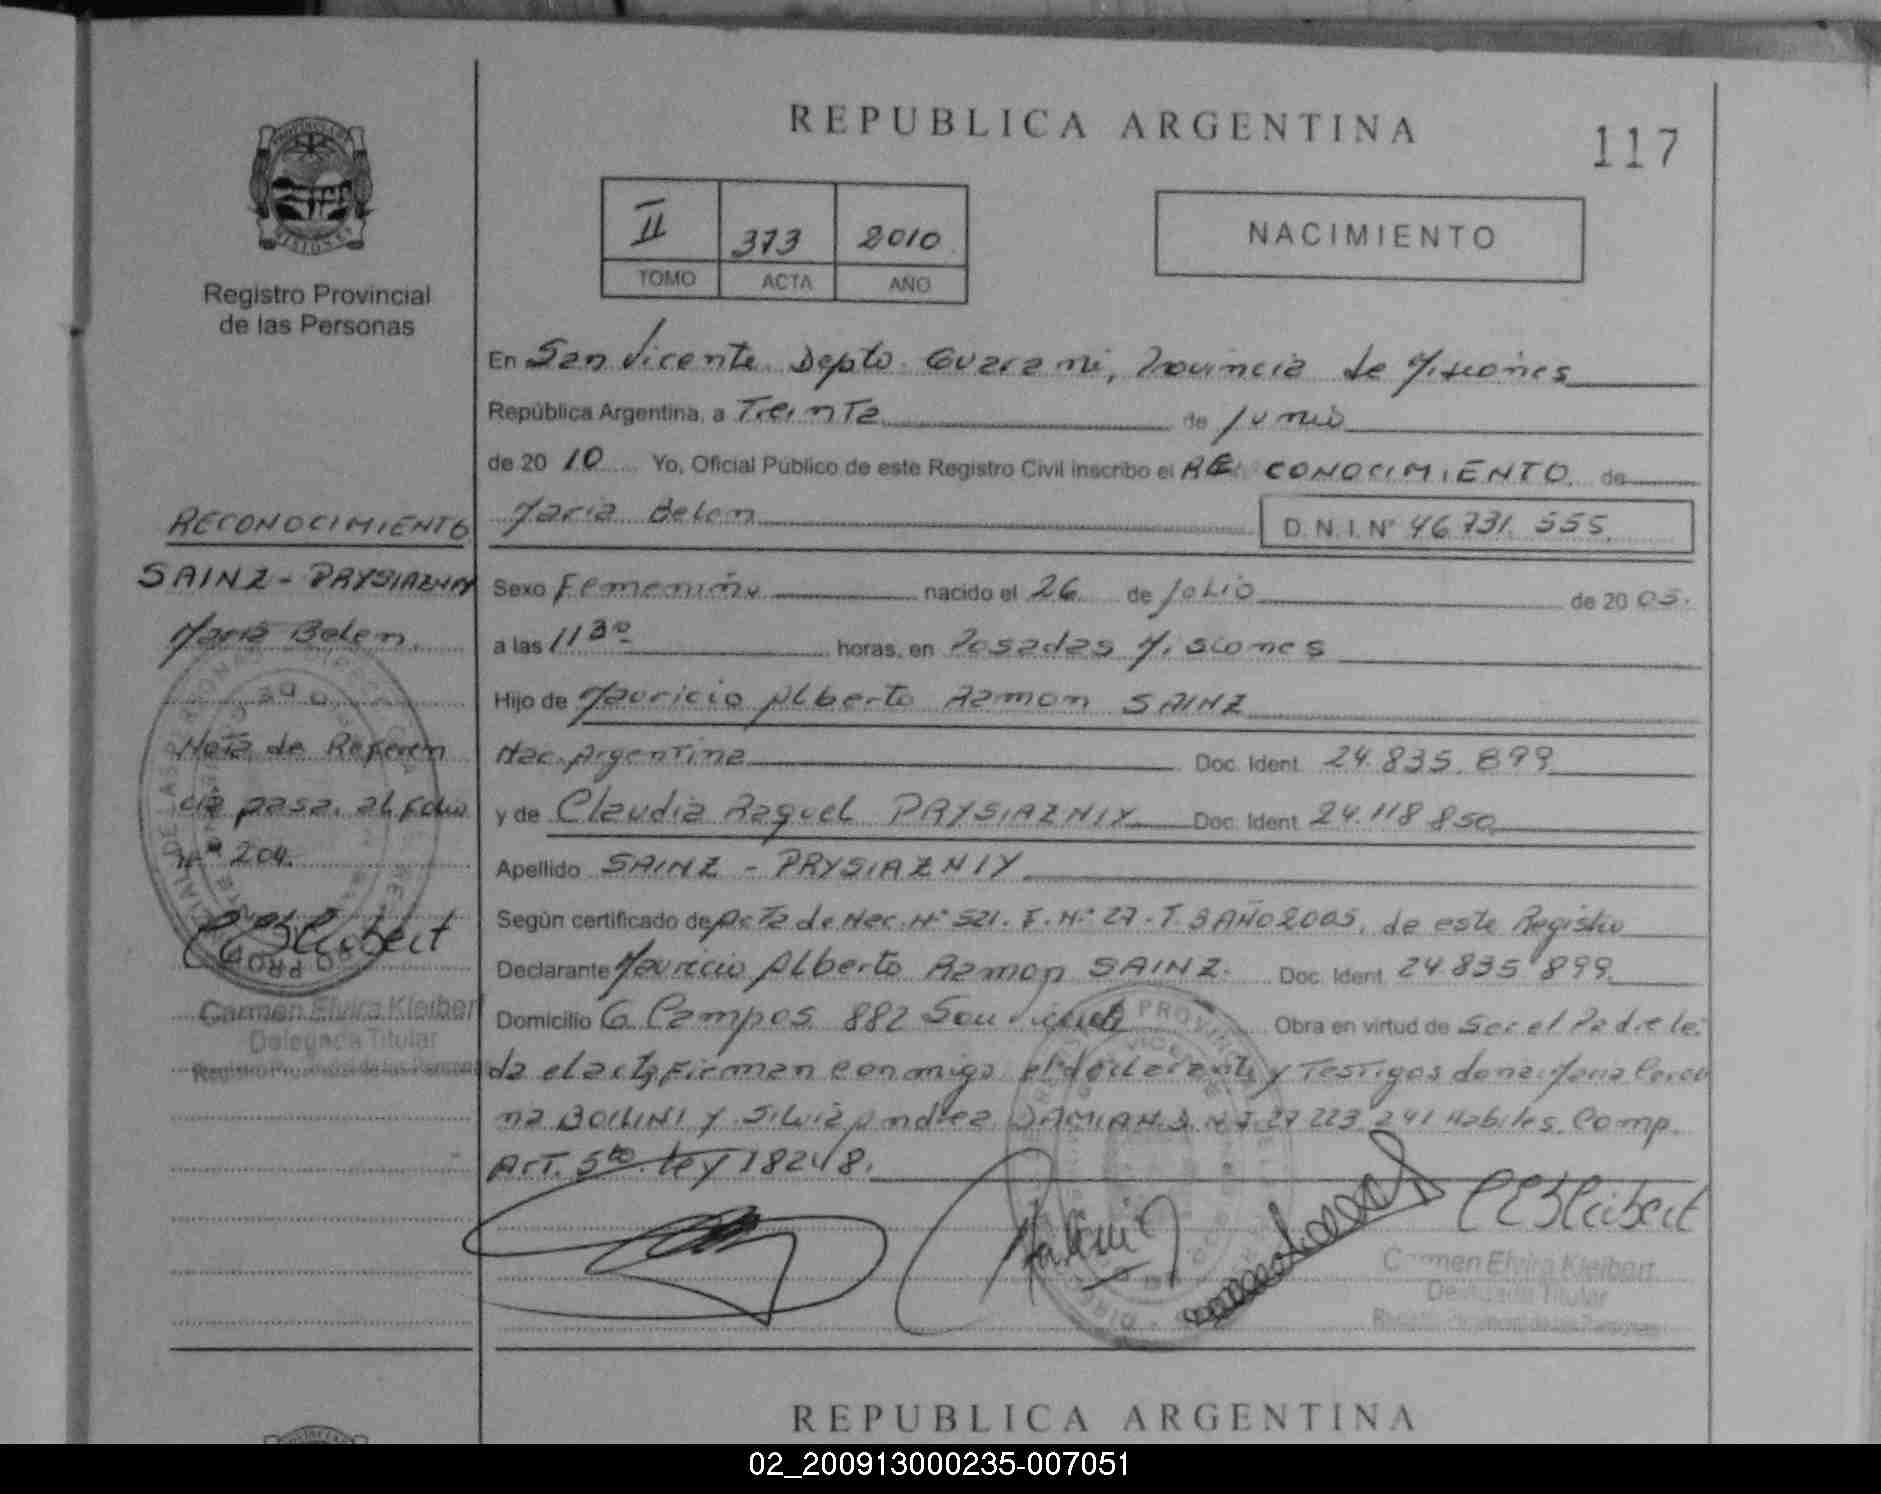 REPUBLICA ARGENTINA
117
II 373 2010
TOMO ACTA AÑO
NACIMIENTO
Registro Provincial
de las Personas
En San Vicente Depto. Guarani, Provincia de Misiones
República Argentina, a Treinta de Junio
de 20 10 Yo, Oficial Público de este Registro Civil inscribo el RECONOCIMIENTO de
Maria Belen D.N.I. Nº 46 731. 555.
Sexo Femenino nacido el 26 de Julio de 20 05.
a las 11 30 horas, en Posadas Misiones
Hijo de Mauricio Alberto Ramon SAINZ
Nac. Argentina Doc. Ident. 24.835.899
y de Claudia Raquel PRYSIAZNIY Doc. Ident. 24.118 850
Apellido SAINZ - PRYSIAZNIY
Según certificado de Acta de Nac. Nº 521. F. Nº 27. T. 3 AÑO 2005, de este Registro
Declarante Mauricio Alberto Ramon SAINZ. Doc. Ident. 24.835 899.
Domicilio G. Campos 882 San Vicente Obra en virtud de Ser el Padre lei
da el acta, Firman conmigo el declarante y Testigos dona Maria
na y Silvia Andrea DAMIAN 27 223 241 Habiles. Comp.
Art. 5to. Ley 18248.
RECONOCIMIENTO
SAINZ - PRYSIAZNIY
Maria Belen.
Nota de Referen
cia pasa. al folio
nº 204.
CEKleibert
Carmen Elvira Kleibert
Delegada Titular
Registro Provincial de las Personas
CEKleibert
Carmen Elvira Kleibert
Delegada Titular
Registro Provincial de las Personas
REPUBLICA ARGENTINA
02_200913000235-007051